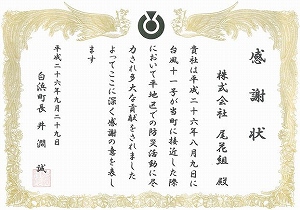 感謝状
株式会社 尾花組 殿
貴社は平成二十六年八月九日に
台風十一号が当町に接近した際
において平地区での防災活動に尽
力され多大な貢献をされました
よってここに深く感謝の意を表し
ます
平成二十六年九月二十九日
白浜町長 井澗 誠